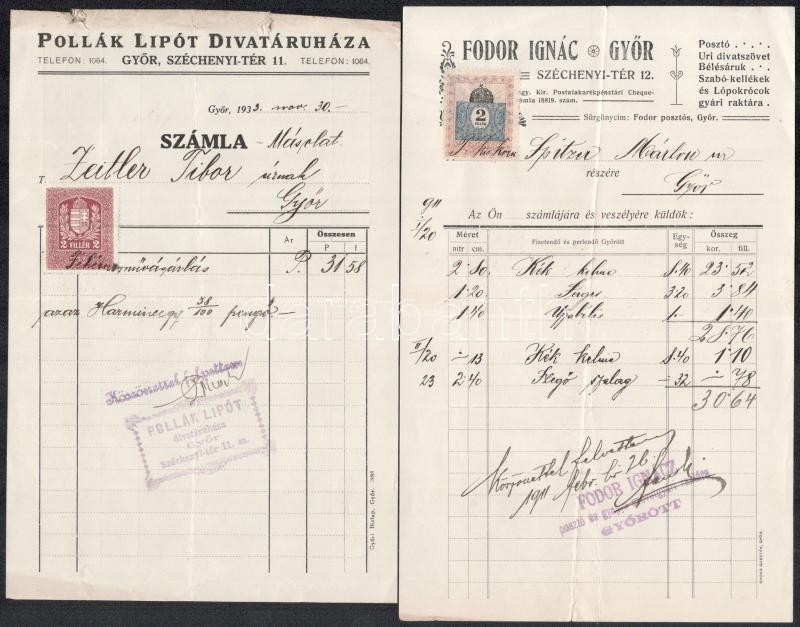 POLLÁK LIPÓT DIVATÁRUHÁZA
TELEFON: 1064. GYŐR, SZÉCHENYI-TÉR 11. TELEFON: 1064.
Győr, 1933. nov. 30.-
SZÁMLA - Másolat
T. Zeitler Tibor úrnak
Győr
Ár Összesen
P f
2 FILLÉR 2
P. 31 58
azaz Harmincegy 58/100 pengő
Köszönettel felvettem
POLLÁK LIPÓT
divatáruháza
Győr
Széchenyi-tér 11. sz.
Győri Hirlap, Győr.
FODOR IGNÁC GYŐR
SZÉCHENYI-TÉR 12.
Kir. Postatakarékpénztári Cheque-
számla 18819. szám.
Sürgönycim: Fodor posztós, Győr.
Posztó
Uri divatszövet
Bélésáruk
Szabó-kellékek
és Lópokrócok
gyári raktára.
2
FILLÉR
Spitzer Márton úr
részére
Győr
911
I/20
Az Ön számlájára és veszélyére küldök:
Méret Fizetendő és perlendő Győrött Egység Összeg
mtr cm. kor. fill.
2 80 Kék kelme 8.40 23 52
1 20 Serges 3.20 3 84
1 40 Ujjbélés 1.- 1 40
28 76
II/20 - 13 Kék kelme 8.40 1 10
23 2 40 Szegő szalag -32 - 78
30 64
Köszönettel felvettem
1911 febr. hó 26
FODOR IGNÁCZ
GYŐRÖTT
darabanth